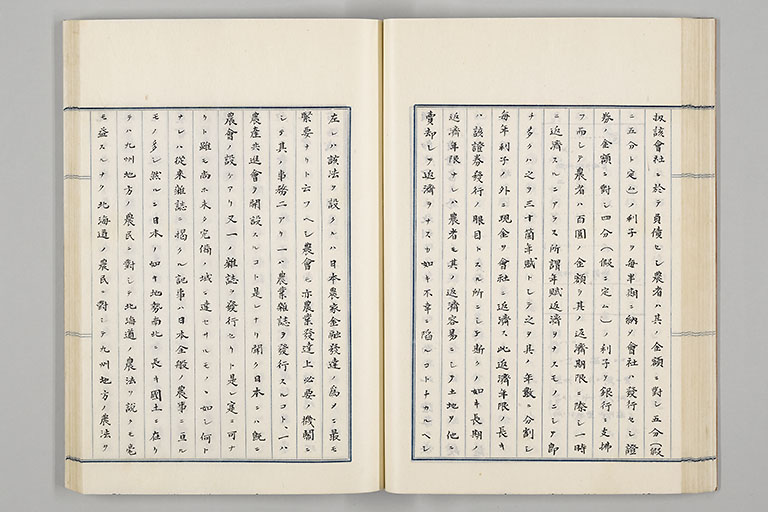 扱該會社ニ於テ負債セシ農者ハ其ノ金額ニ對シ五分(假
ニ五分ト定ム)ノ利子ヲ毎半期ニ納メ會社ハ發行セシ證
券ノ金額ニ對シ四分(假ニ定ム)ノ利子ヲ銀行ニ支拂
フ而シテ農者ハ百圓ノ金額ヲ其ノ返濟期限ニ際シ一時
ニ返濟スルニアラス所謂年賦返濟ヲナスモノニシテ即
チ多クハ之ヲ三十箇年賦トシテ之ヲ其ノ年數ニ分割シ
毎年利子ノ外ニ現金ヲ會社ニ返濟ス此返濟年限ノ長キ
ハ該證券發行ノ眼目トスル所ニシテ斯クノ如キ長期ノ
返濟年限ナレハ農者モ其ノ返濟容易ニシテ土地ヲ他ニ
賣却シテ返濟ヲナスカ如キ不幸ニ陷ルコトナカルヘシ
左レハ該法ヲ設クルハ日本農家金融發達ノ爲メニ最モ
緊要ナリト云フヘシ農會モ亦農業發達上必要ノ機關ニ
シテ其ノ事務二アリ一ハ農業雜誌ヲ發行スルコト、一ハ
農産共進會ヲ開設スルコト是レナリ聞ク日本ニハ既ニ
農會ノ設ケアリ又一ノ雜誌ヲ發行セリト是レ寔ニ可ナ
リト雖モ尚ホ未タ完備ノ域ニ達セサルモノヽ如シ何ト
ナレハ從來雜誌ニ掲クル記事ハ日本全般ノ農事ニ亘ル
モノ多シ然ルニ日本ノ如キ地勢南北ニ長キ國土ニ在リ
テハ九州地方ノ農民ニ對シテ北海道ノ農法ヲ説クモ毫
モ益スルナク北海道ノ農民ニ對シテ九州地方ノ農法ヲ